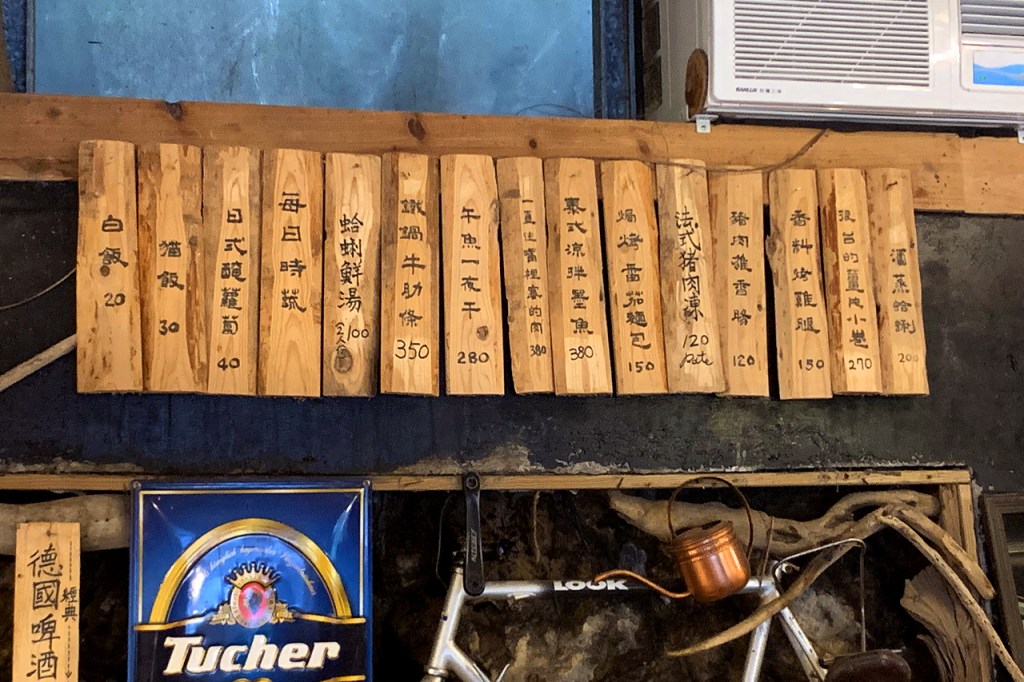 白飯 20
猫飯 30
日式蘿蔔 40
每日時蔬
蛤蜊鮮湯 100
鐵鍋牛肋條 350
午魚一夜干 280
一直往嘴裡塞的肉 380
泰式涼拌墨魚 380
焗烤雪茄麵包 150
法式猪肉凍 120 pate
猪肉推香腸 120
香料烤雞腿 150
很台的薑皮小卷 270
酒蒸蛤蜊 200
SANLUX 台灣三洋
德國啤酒
經典
Tucher
LOOK